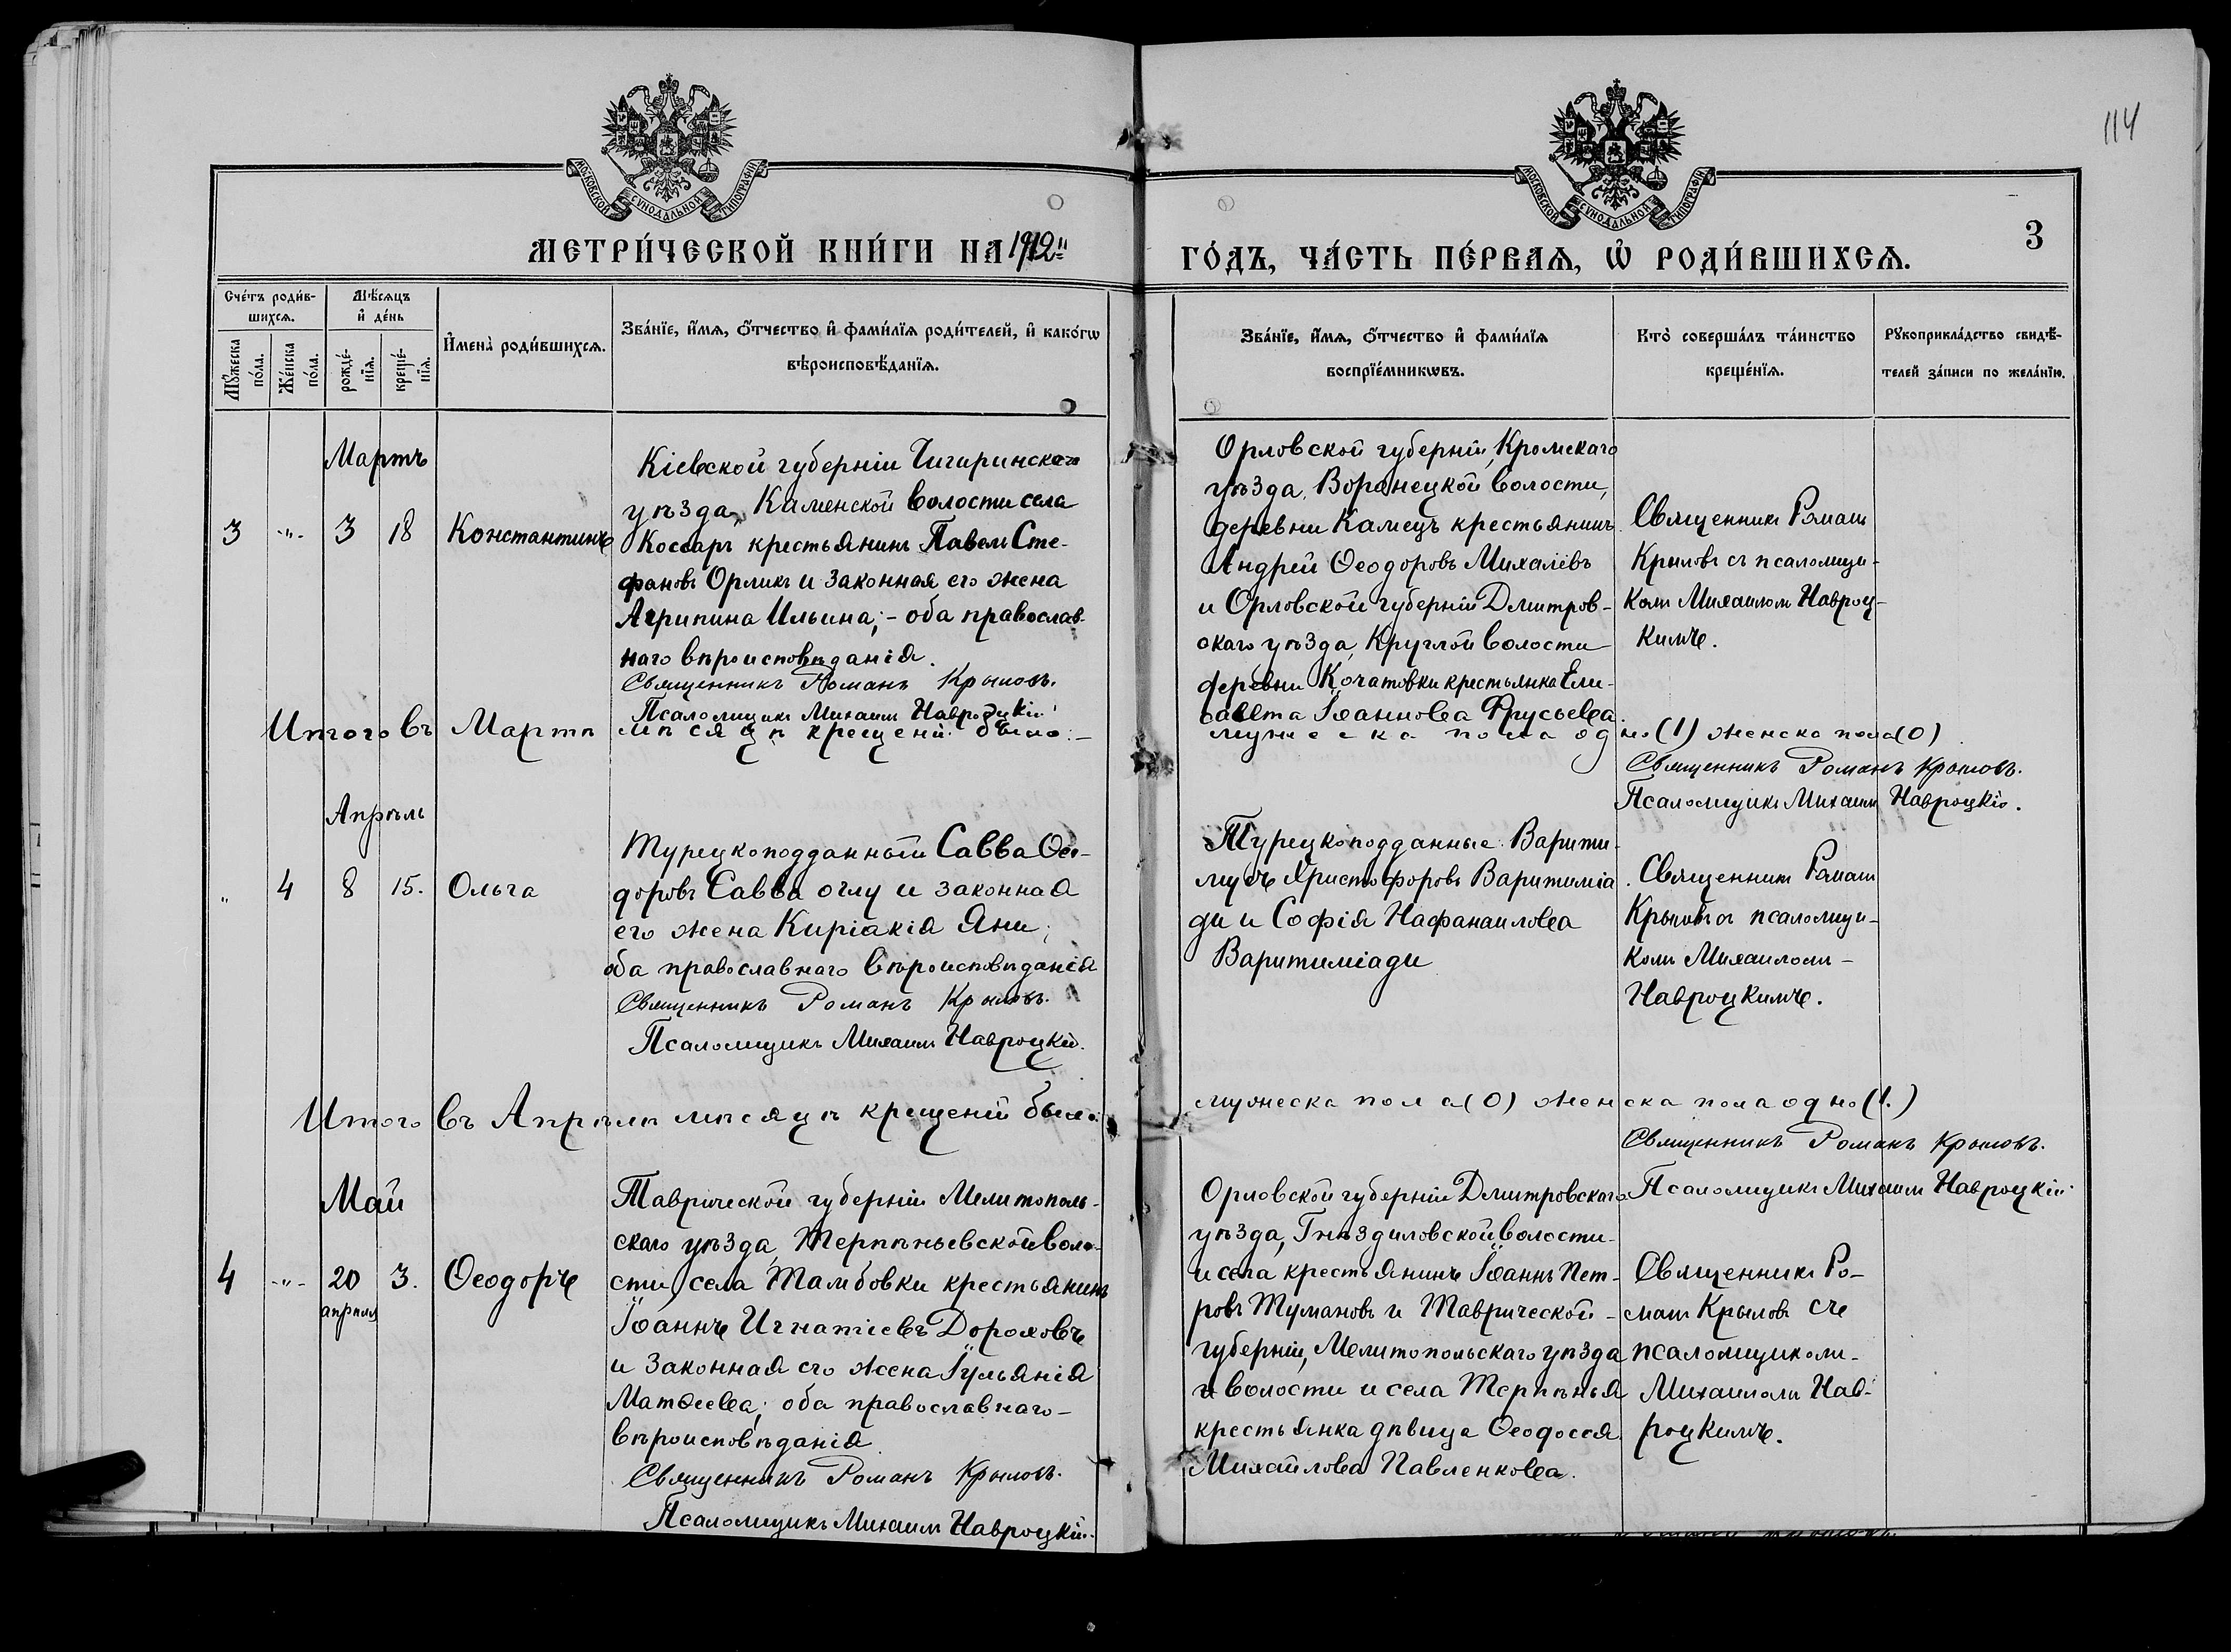 114
МОСКОВСКОЙ СѴНОДАЛЬНОЙ ТИПОГРАФІИ
МОСКОВСКОЙ СѴНОДАЛЬНОЙ ТИПОГРАФІИ
3
МЕТРИ́ЧЕСКОЙ КНИ́ГИ НА 1912 й
ГО́ДЪ, ЧА́СТЬ ПЕ́РВАѦ, Ѡ҆ РОДИ́ВШИХСѦ.
Сче́тъ роди́в-
шихсѧ.
Мꙋ́жеска
по́ла.
Же́нска
по́ла.
Мѣ́сѧцъ
и҆ де́нь
рожде́-
нїѧ.
креще́-
нїѧ.
И҆мена̀ роди́вшихсѧ.
Зва́нїе, и҆́мѧ, ѻ҆́тчество и҆ фами́лїѧ роди́телей, и҆ како́гѡ
вѣроисповѣ́данїѧ.
Зва́нїе, и҆́мѧ, ѻ҆́тчество и҆ фами́лїѧ
воспрїе́мникѡвъ.
Кто̀ соверша́лъ та́инство
креще́нїѧ.
Рꙋкоприкла́дство свидѣ́-
телей за́писи по жела́нїю.
Мартъ
3 -"- 3 18 Константинъ
Кіевской губерніи Чигиринскаго
уѣзда, Каменской волости села
Коссаръ крестьянинъ Павелъ Сте-
фановъ Орликъ и законная его жена
Агрипина Ильина; - оба православ-
наго вѣроисповѣданія.
Священникъ Романъ Крыловъ.
Псаломщикъ Михаилъ Навроцкій
Орловской губерніи, Кромскаго
уѣзда, Воронецкой волости,
деревни Камецъ крестьянинъ
Андрей Ѳеодоровъ Михалёвъ
и Орловской губерніи Дмитров-
скаго уѣзда, Круглой волости
деревни Кочатовки крестьянка Ели-
савета Іоаннова Фрусьева.
Священникъ Романъ
Крыловъ съ псаломщи-
комъ Михаиломъ Навроц-
кимъ.
Итого въ Мартѣ мѣсяцѣ крещеній было: -
мужеска пола одно (1) женска пола (0).
Священникъ Романъ Крыловъ.
Псаломщикъ Михаилъ Навроцкій.
Апрѣль
" 4 8 15. Ольга
Турецкоподданный Савва Ѳео-
доровъ Савва оглу и законная
его жена Киріакія Яни;
оба православнаго вѣроисповѣданія
Священникъ Романъ Крыловъ.
Псаломщикъ Михаилъ Навроцкій.
Турецкоподданные Варити-
мусъ Христофоровъ Варитиміа
ди и Софія Нафанаилова
Варитиміади
Священникъ Романъ
Крыловъ съ псаломщи-
комъ Михаиломъ -
Навроцкимъ.
Итого въ Апрѣлѣ мѣсяцѣ крещеній было:
мужеска пола (0) женска пола одно (1.)
Священникъ Романъ Крыловъ.
Псаломщикъ Михаилъ Навроцкій.
Май
4 -"- 20 3. Ѳеодоръ
апрѣля
Таврической губерніи Мелитополь-
скаго уѣзда, Терпѣньевской воло-
сти, села Тамбовки крестьянинъ
Іоаннъ Игнатіевъ Дороховъ
и законная его жена Іульянія
Матѳеева; оба православнаго -
вѣроисповѣданія.
Священникъ Романъ Крыловъ.
Псаломщикъ Михаилъ Навроцкій.
Орловской губерніи Дмитровскаго
уѣзда, Гнѣздиловской волости -
и села крестьянинъ Іоаннъ Пет-
ровъ Тумановъ и Таврической -
губерніи, Мелитопольскаго уѣзда
и волости и села Терпѣнья
крестьянка дѣвица Ѳеодосся
Михайлова Павленкова.
Священникъ Ро-
манъ Крыловъ съ
псаломщикомъ -
Михаиломъ Нав-
роцкимъ.